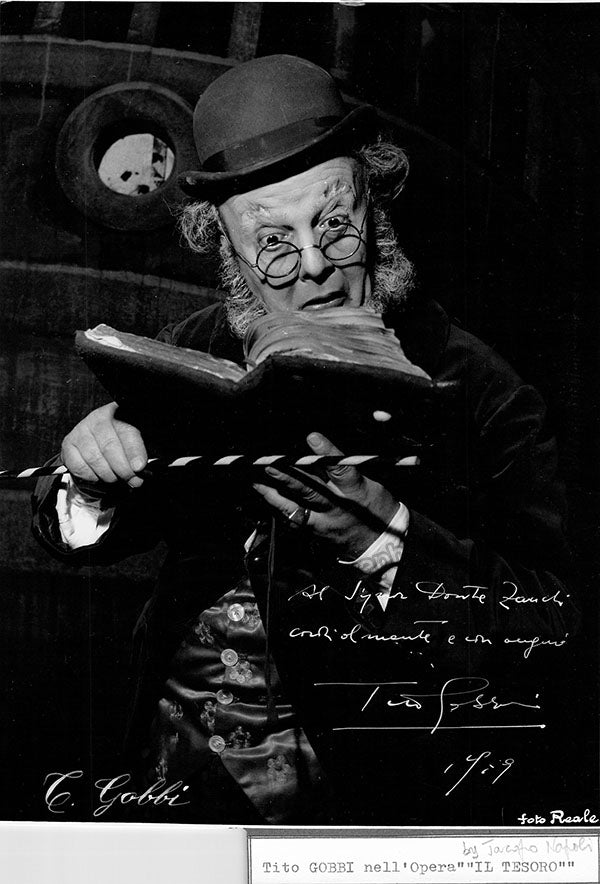 Al Signor Dante Zanchi
cordialmente e con auguri
Tito Gobbi
1979
T. Gobbi
foto Reale
by Jacopo Napoli
Tito GOBBI nell'Opera""IL TESORO""